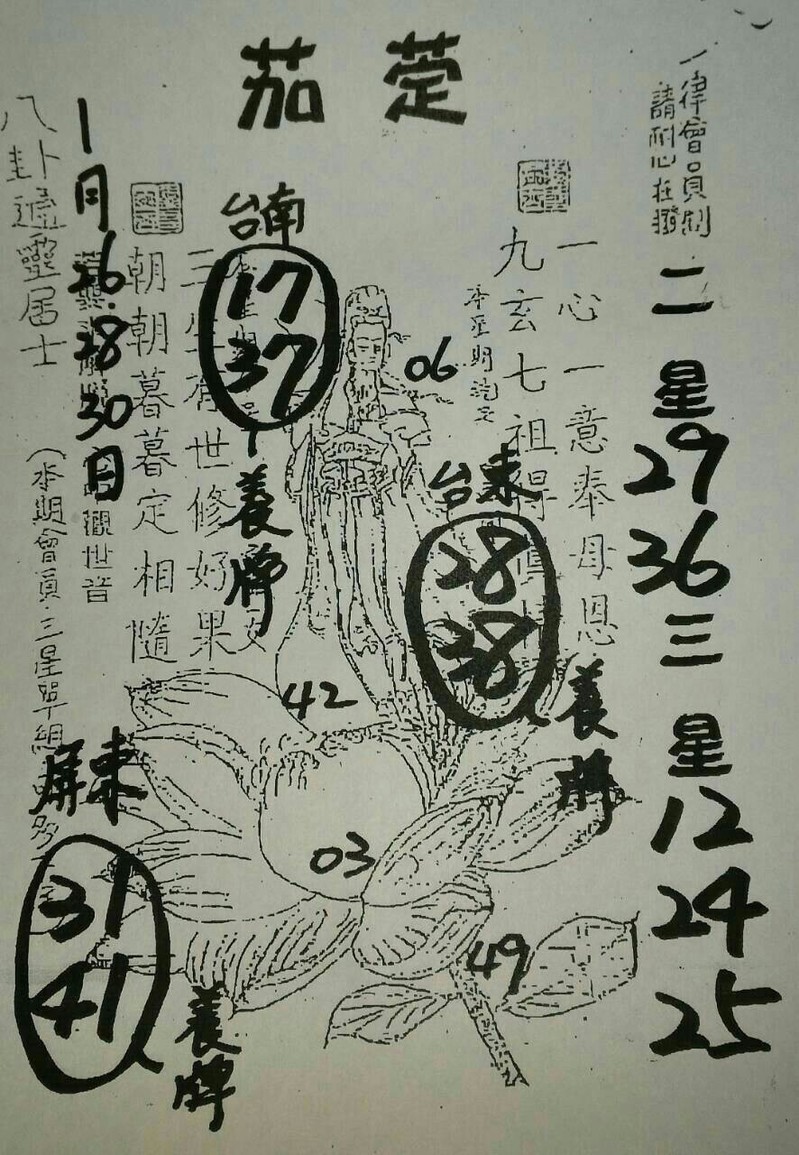 茄萣
一律會員制
請耐心在撥
二星
29
36
三星
12
24
25
一心一意奉母恩
九玄七祖得
本星期
06
台東
28
38
養牌
台南
17
37
養牌
世修好果
朝朝暮暮定相隨
觀世音
1月26.28.30日
八卦通靈居士
(本期會員三星單組
42
03
49
屏東
31
41
養牌